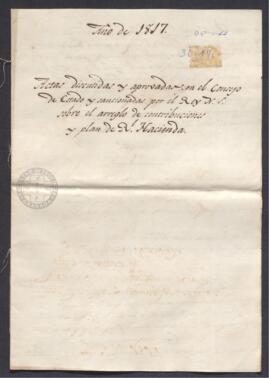 Año de 1817.
Actas discutidas y aprovadas en el Consejo
de Estado y sancionadas por el Rey N. S.
sobre el arreglo de contribuciones
y plan de Rl. Hacienda.